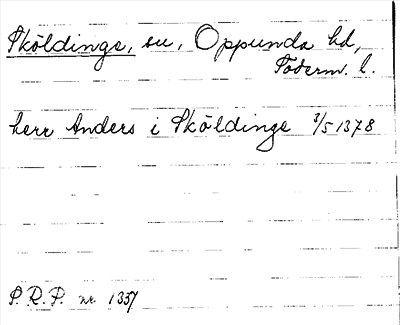 Sköldinge, sn, Oppunda hd,
Söderm. l.
herr Anders i Sköldinge 3/5 1378
P.R.P. nr 1337